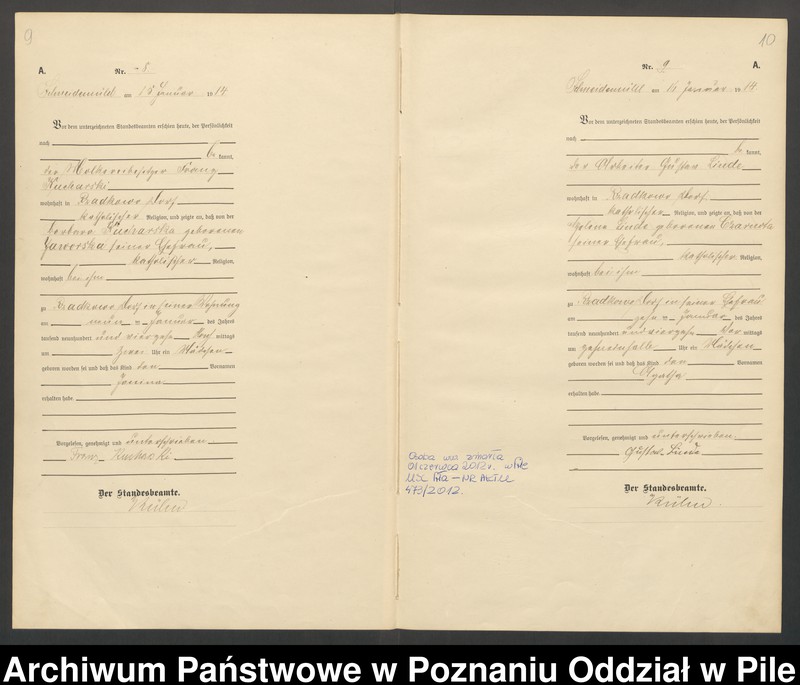 9
A. Nr. 8.
Schneidemühl am 15 Januar 1914
Vor dem unterzeichneten Standesbeamten erschien heute, der Persönlichkeit
nach
be kannt,
der Molkereibesitzer Franz
Kucharski
wohnhaft in Radkowo Dorf
katholischer Religion, und zeigte an, daß von der
Barbara Kucharska geborenen
Jaworska seiner Ehefrau,
katholischer Religion,
wohnhaft bei ihm
zu Radkowo Dorf in seiner Wohnung
am neun Januar des Jahres
tausend neunhundert und vierzehn Vor mittags
um zwei Uhr ein Mädchen
geboren worden sei und daß das Kind den Vornamen
Janina
erhalten habe
Vorgelesen, genehmigt und unterschrieben
Franz Kucharski
Der Standesbeamte.
10
Nr. 9 A.
Schneidemühl am Januar 1914
Vor dem unterzeichneten Standesbeamten erschien heute, der Persönlichkeit
nach
be kannt,
der Arbeiter Gustav Linde
wohnhaft in Radkowo Dorf
katholischer Religion, und zeigte an, daß von der
Linde geborenen
seiner Ehefrau,
katholischer Religion,
wohnhaft bei ihm
zu Radkowo Dorf in seiner
am zehn Januar des Jahres
tausend neunhundert und vierzehn Vor mittags
um Uhr ein Mädchen
geboren worden sei und daß das Kind den Vornamen
Agatha
erhalten habe
Vorgelesen, genehmigt und unterschrieben.
Gustav Linde
Der Standesbeamte.
Osoba ww zmarła
01 czerwca 2012 r. w Pile
USC Piła - NR AKTU
473/2012.
Archiwum Państwowe w Poznaniu Oddział w Pile